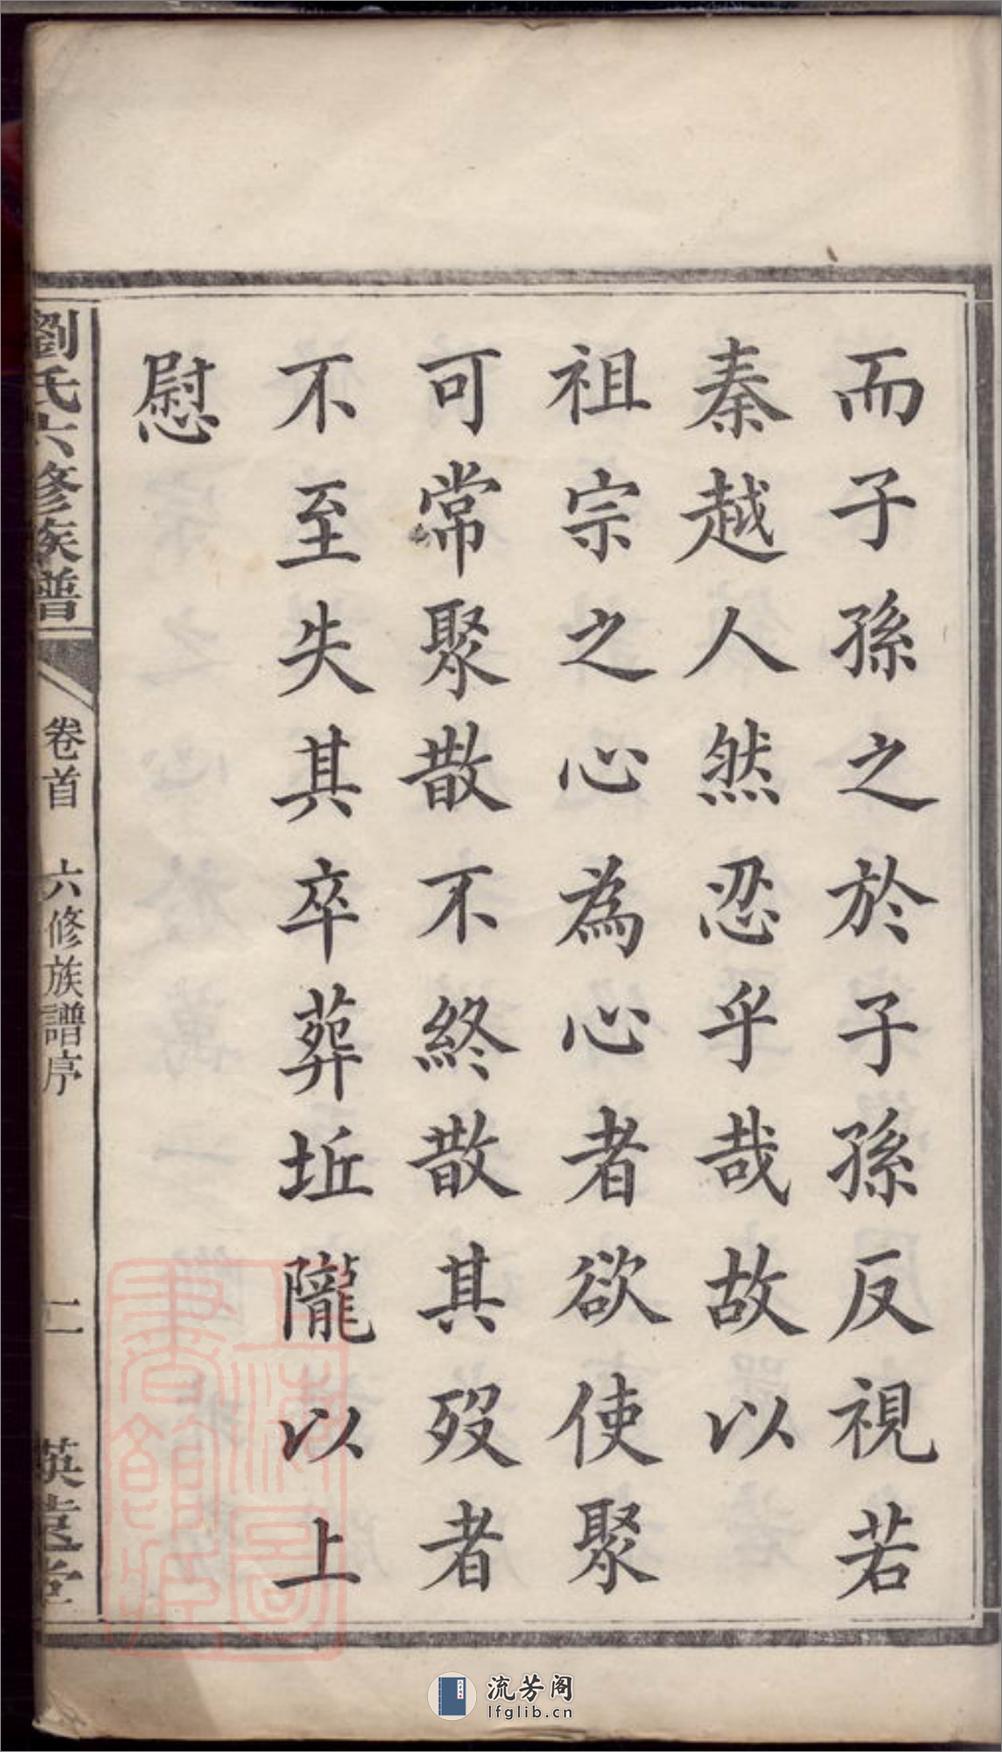 而子孫之於子孫反視若
秦越人然忍乎哉故以
祖宗之心為心者欲使聚
可常聚散不終散其歿者
不至失其卒葬坵隴以上
慰
劉氏六修族譜
卷首
六修族譜序
二
上海圖
書館藏
流芳阁
lfglib.cn